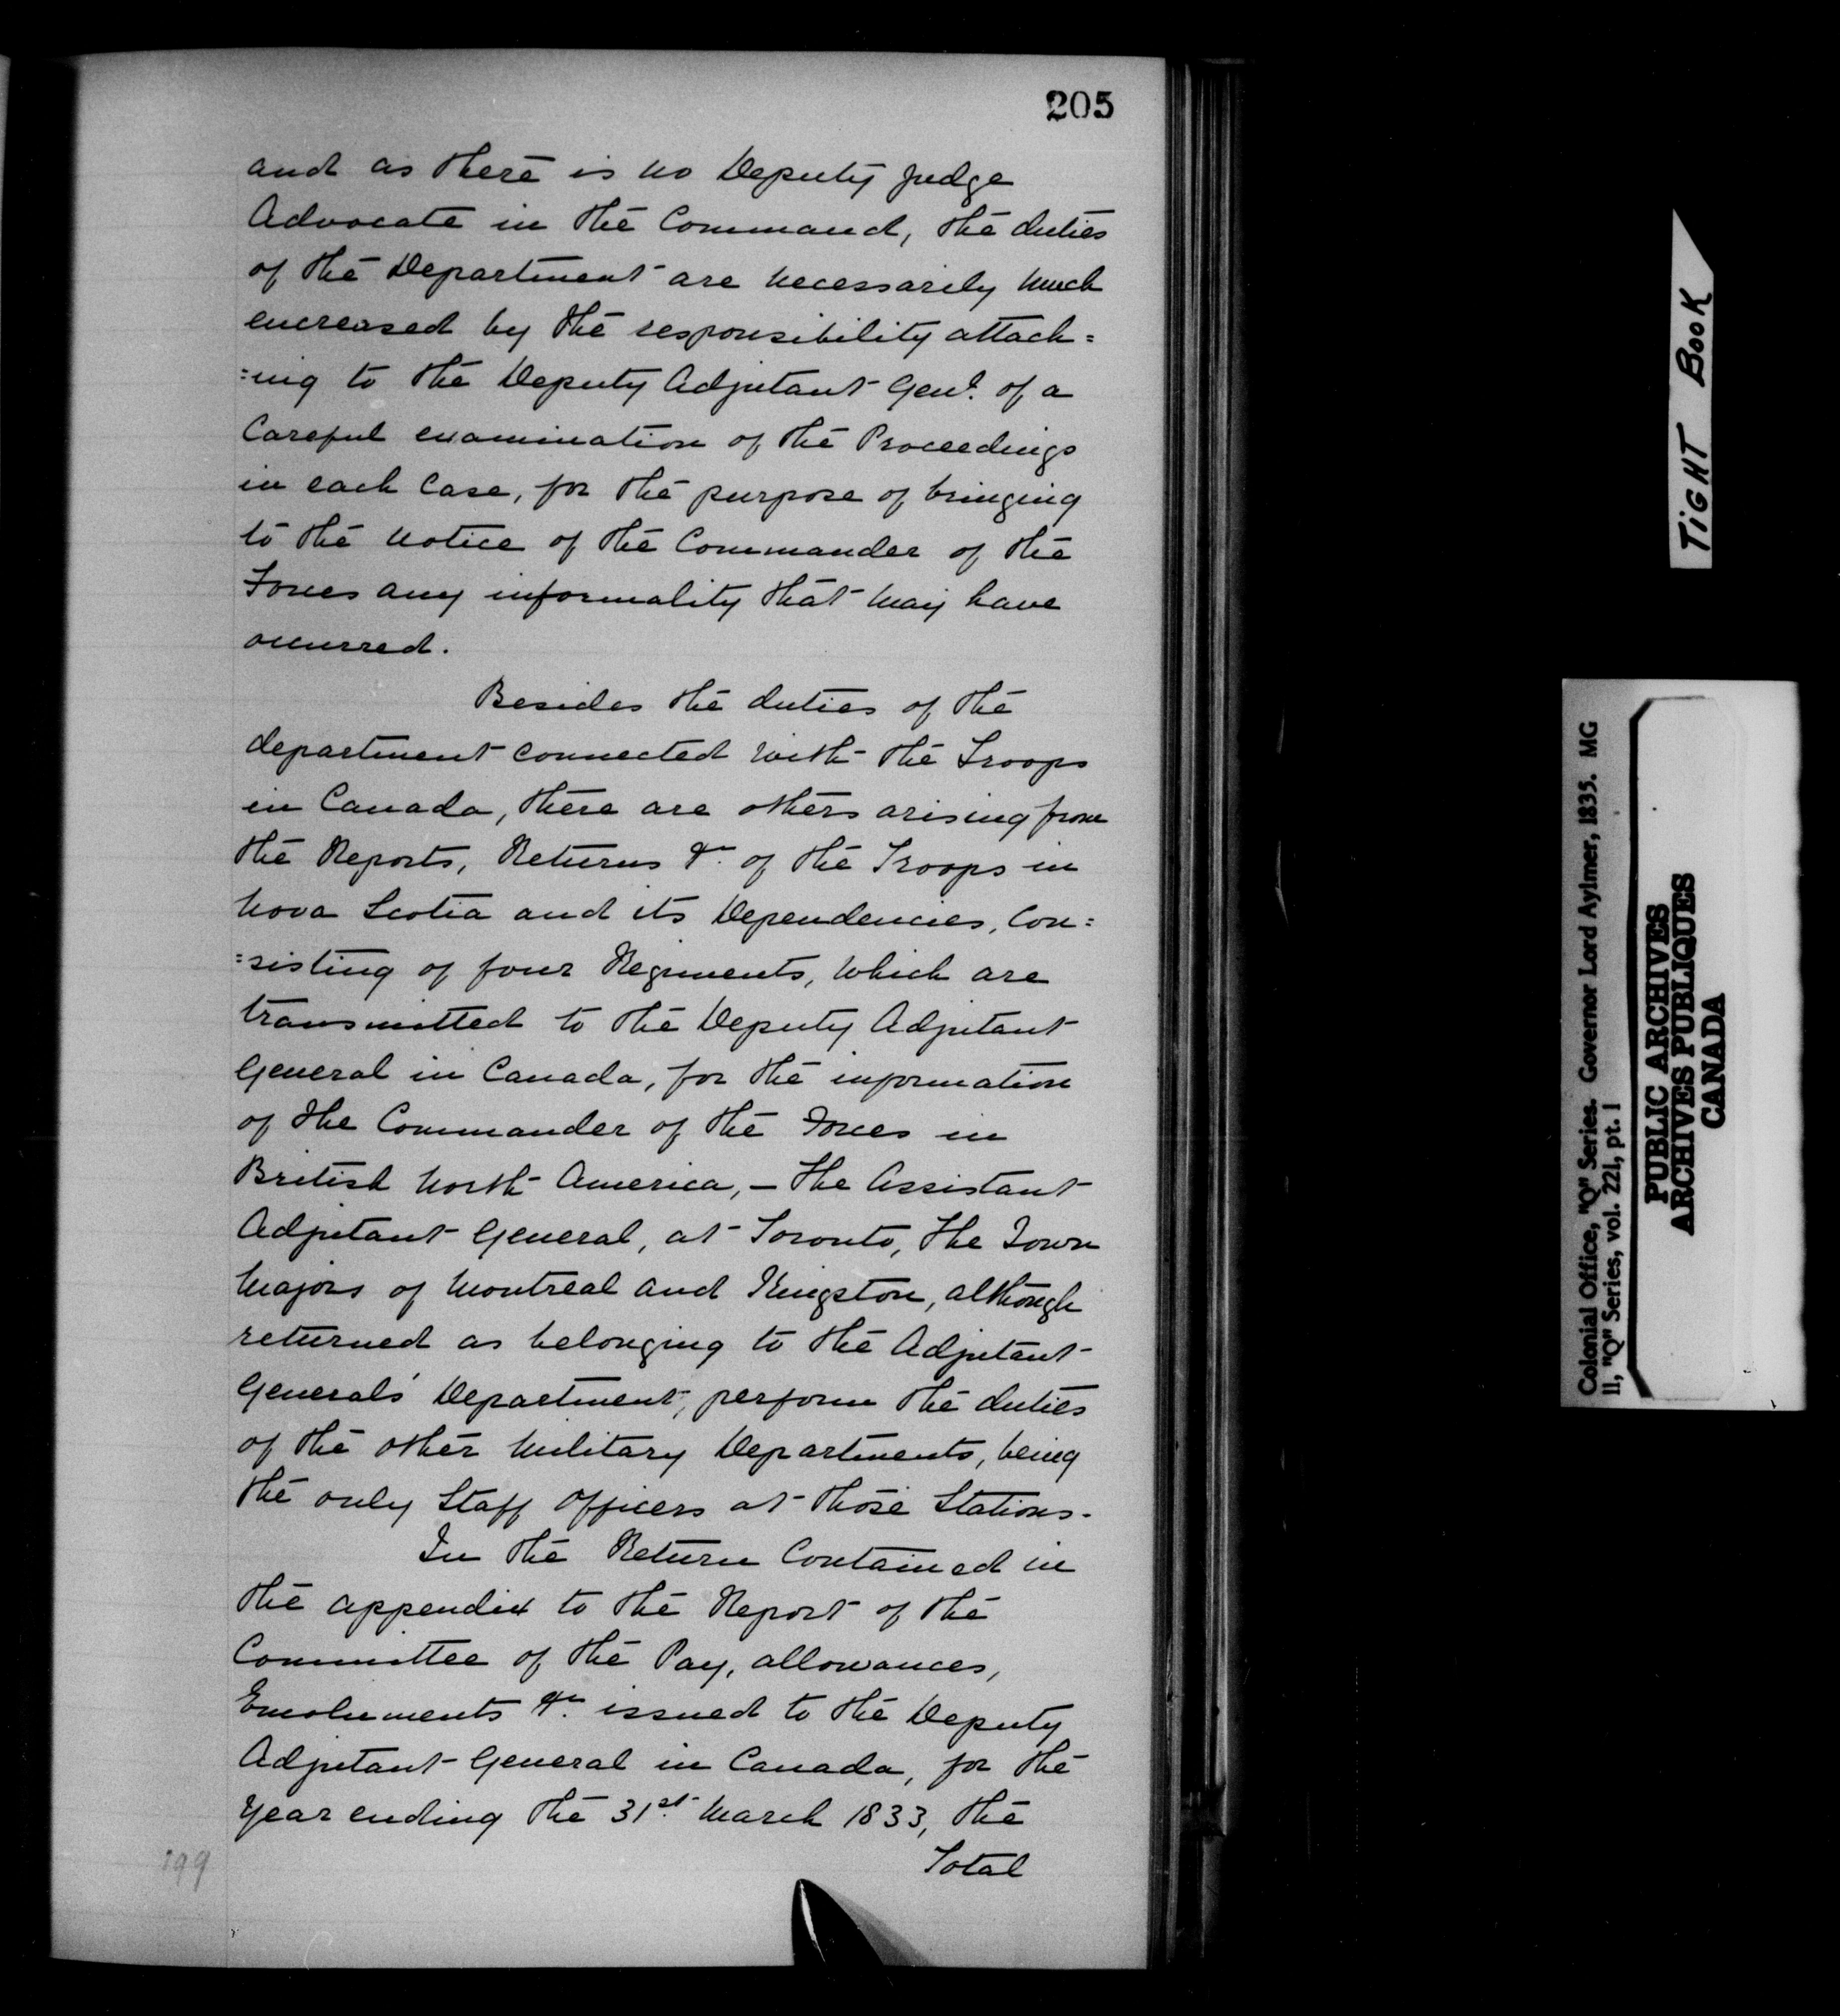 205
and as there is no Deputy Judge
Advocate in the Command, the duties
of the Department are necessarily much
encreased by the responsibility attach=
=ing to the Deputy Adjutant Genl. of a
Careful examination of the Proceedings
in each Case, for the purpose of bringing
to the notice of the Commander of the
Forces any informality that may have
occurred.
Besides the duties of the
department connected with the Troops
in Canada, there are others arising from
the Reports, Returns &c. of the Troops in
Nova Scotia and its Dependencies, Con=
=sisting of four Regiments, which are
transmitted to the Deputy Adjutant
General in Canada, for the information
of the Commander of the Forces in
British North America, – The Assistant
Adjutant General, at Toronto, The Town
Majors of Montreal and Kingston, although
returned as belonging to the Adjutant
Generals' Department, perform the duties
of the other Military Departments, being
the only Staff Officers at those Stations.
In the Return Contained in
the appendix to the Report of the
Committee of the Pay, allowances,
Emoluments &c. issued to the Deputy
Adjutant General in Canada, for the
Year ending the 31st. March 1833, the
Total
199
TIGHT BOOK
Colonial Office, "Q" Series. Governor Lord Aylmer, 1835. MG
11, "Q" Series, vol. 221, pt. 1
PUBLIC ARCHIVES
ARCHIVES PUBLIQUES
CANADA